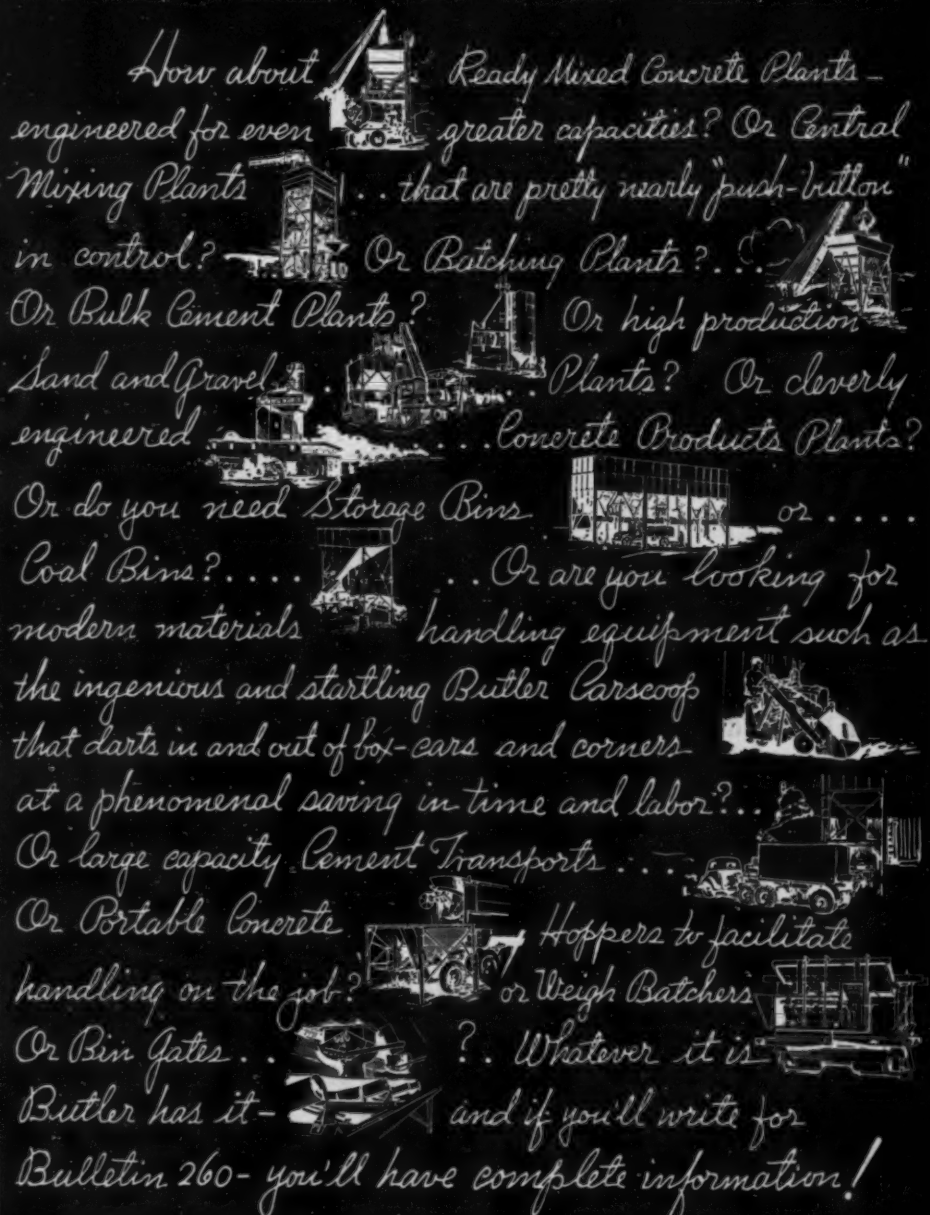 How about Ready Mixed Concrete Plants -
engineered for even greater capacities? Or Central
Mixing Plants .. that are pretty nearly "push-button"
in control? Or Batching Plants?...
Or Bulk Cement Plants? Or high production
Sand and Gravel .. Plants? Or cleverly
engineered ..... Concrete Products Plants?
Or do you need Storage Bins or .....
Coal Bins?.... .. Or are you looking for
modern materials handling equipment such as
the ingenious and startling Butler Carscoop
that darts in and out of box-cars and corners
at a phenomenal saving in time and labor?..
Or large capacity Cement Transports ....
Or Portable Concrete Hoppers to facilitate
handling on the job? or Weigh Batchers
Or Bin Gates .. ?. Whatever it is
Butler has it - and if you'll write for
Bulletin 260 - you'll have complete information!